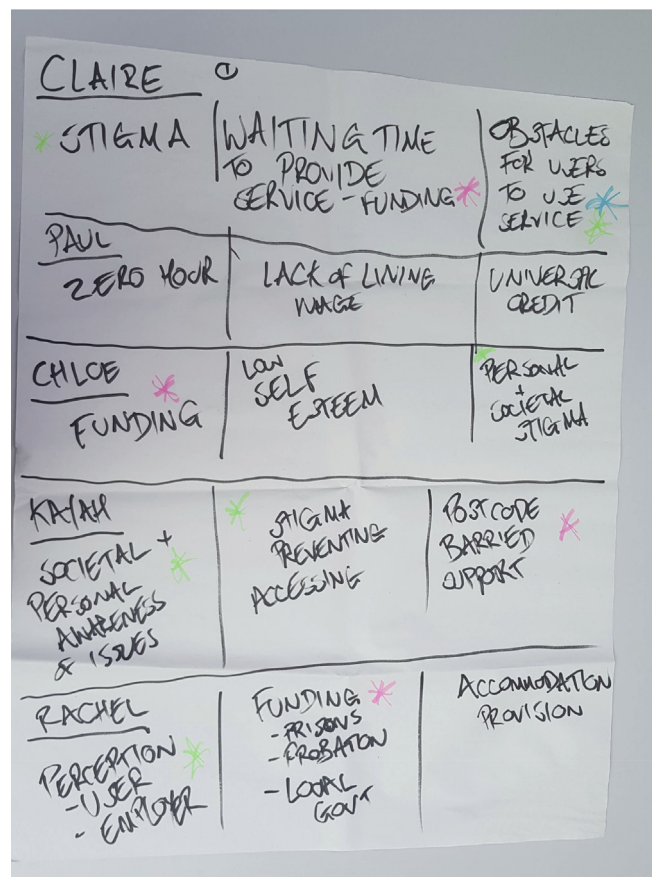 CLAIRE ①
STIGMA
WAITING TIME
TO PROVIDE
SERVICE - FUNDING
OBSTACLES
FOR USERS
TO USE
SERVICE
PAUL
ZERO HOUR
LACK OF LINING
WAGE
UNIVERSAL
CREDIT
CHLOE
FUNDING
LOW
SELF
ESTEEM
PERSONAL
+
SOCIETAL
STIGMA
KAYAH
SOCIETAL +
PERSONAL
AWARENESS
& ISSUES
STIGMA
PREVENTING
ACCESSING
POSTCODE
BARRIED
SUPPORT
RACHEL
PERCEPTION
- USER
- EMPLOYER
FUNDING
- PRISONS
- PROBATION
- LOCAL
GOVT
ACCOMMODATION
PROVISION